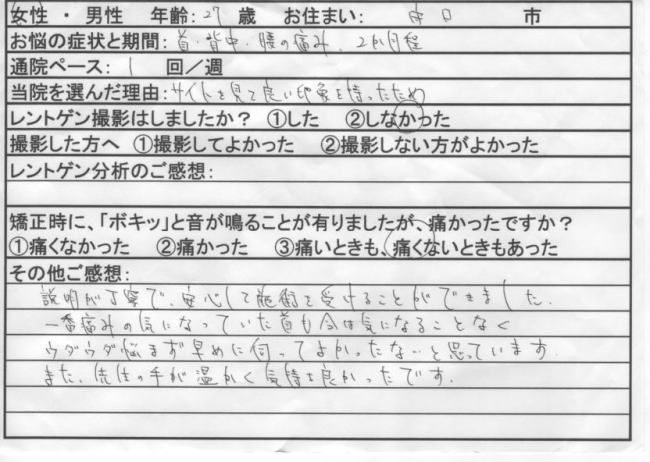 女性 ・ 男性 年齢: 27 歳 お住まい: 市
お悩の症状と期間: 首・背中・腰の痛み、2か月程
通院ペース: 1 回／週
当院を選んだ理由: サイトを見て良い印象を持ったため
レントゲン撮影はしましたか？ ①した ②しなかった
撮影した方へ ①撮影してよかった ②撮影しない方がよかった
レントゲン分析のご感想:
矯正時に、「ボキッ」と音が鳴ることが有りましたが、痛かったですか？
①痛くなかった ②痛かった ③痛いときも、痛くないときもあった
その他ご感想:
説明が丁寧で、安心して施術を受けることができました。
一番痛みの気になっていた首も今は気になることなく
ウダウダ悩まず早めに伺ってよかったなぁと思っています。
また、先生の手が温かく気持ち良かったです。